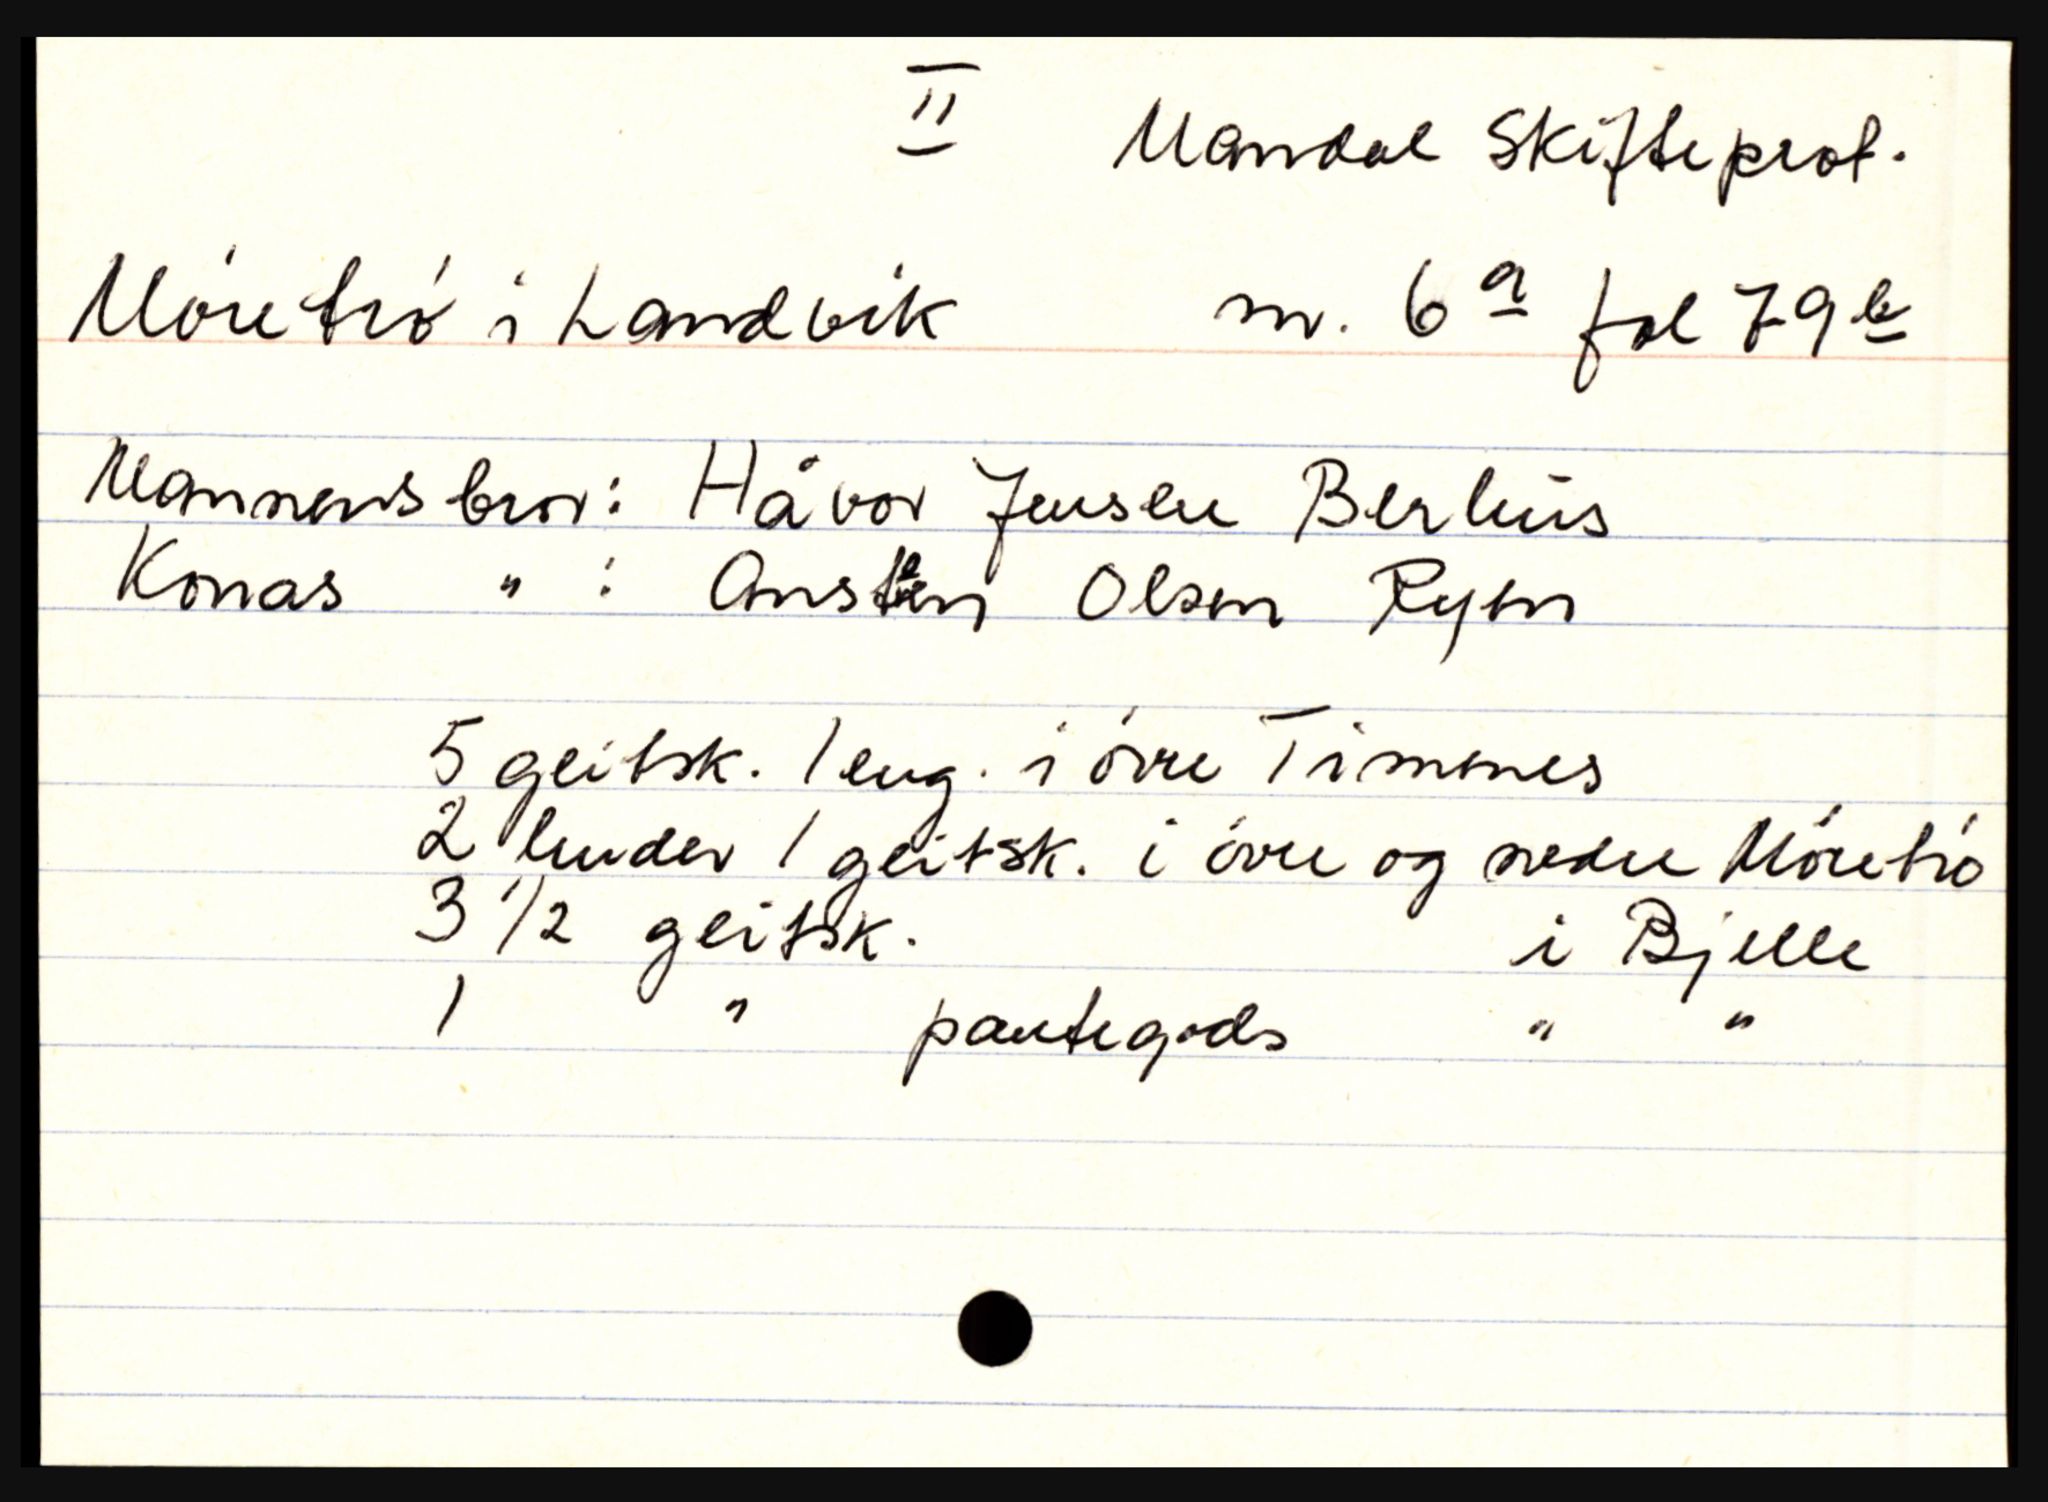 II Mandal Skifteprot.
Móretró i Landvik nr. 6a fol 79b
Mannens bror: Håvor Jensen Berhus
Konas " : Austen Olsen Ryen
5 geitsk. 1 eng. i óvre Timenes
2 huder 1 geitsk. i óvre og nedre Móretró
3 1/2 geitsk. i Bjelle
1 " pantegods " "